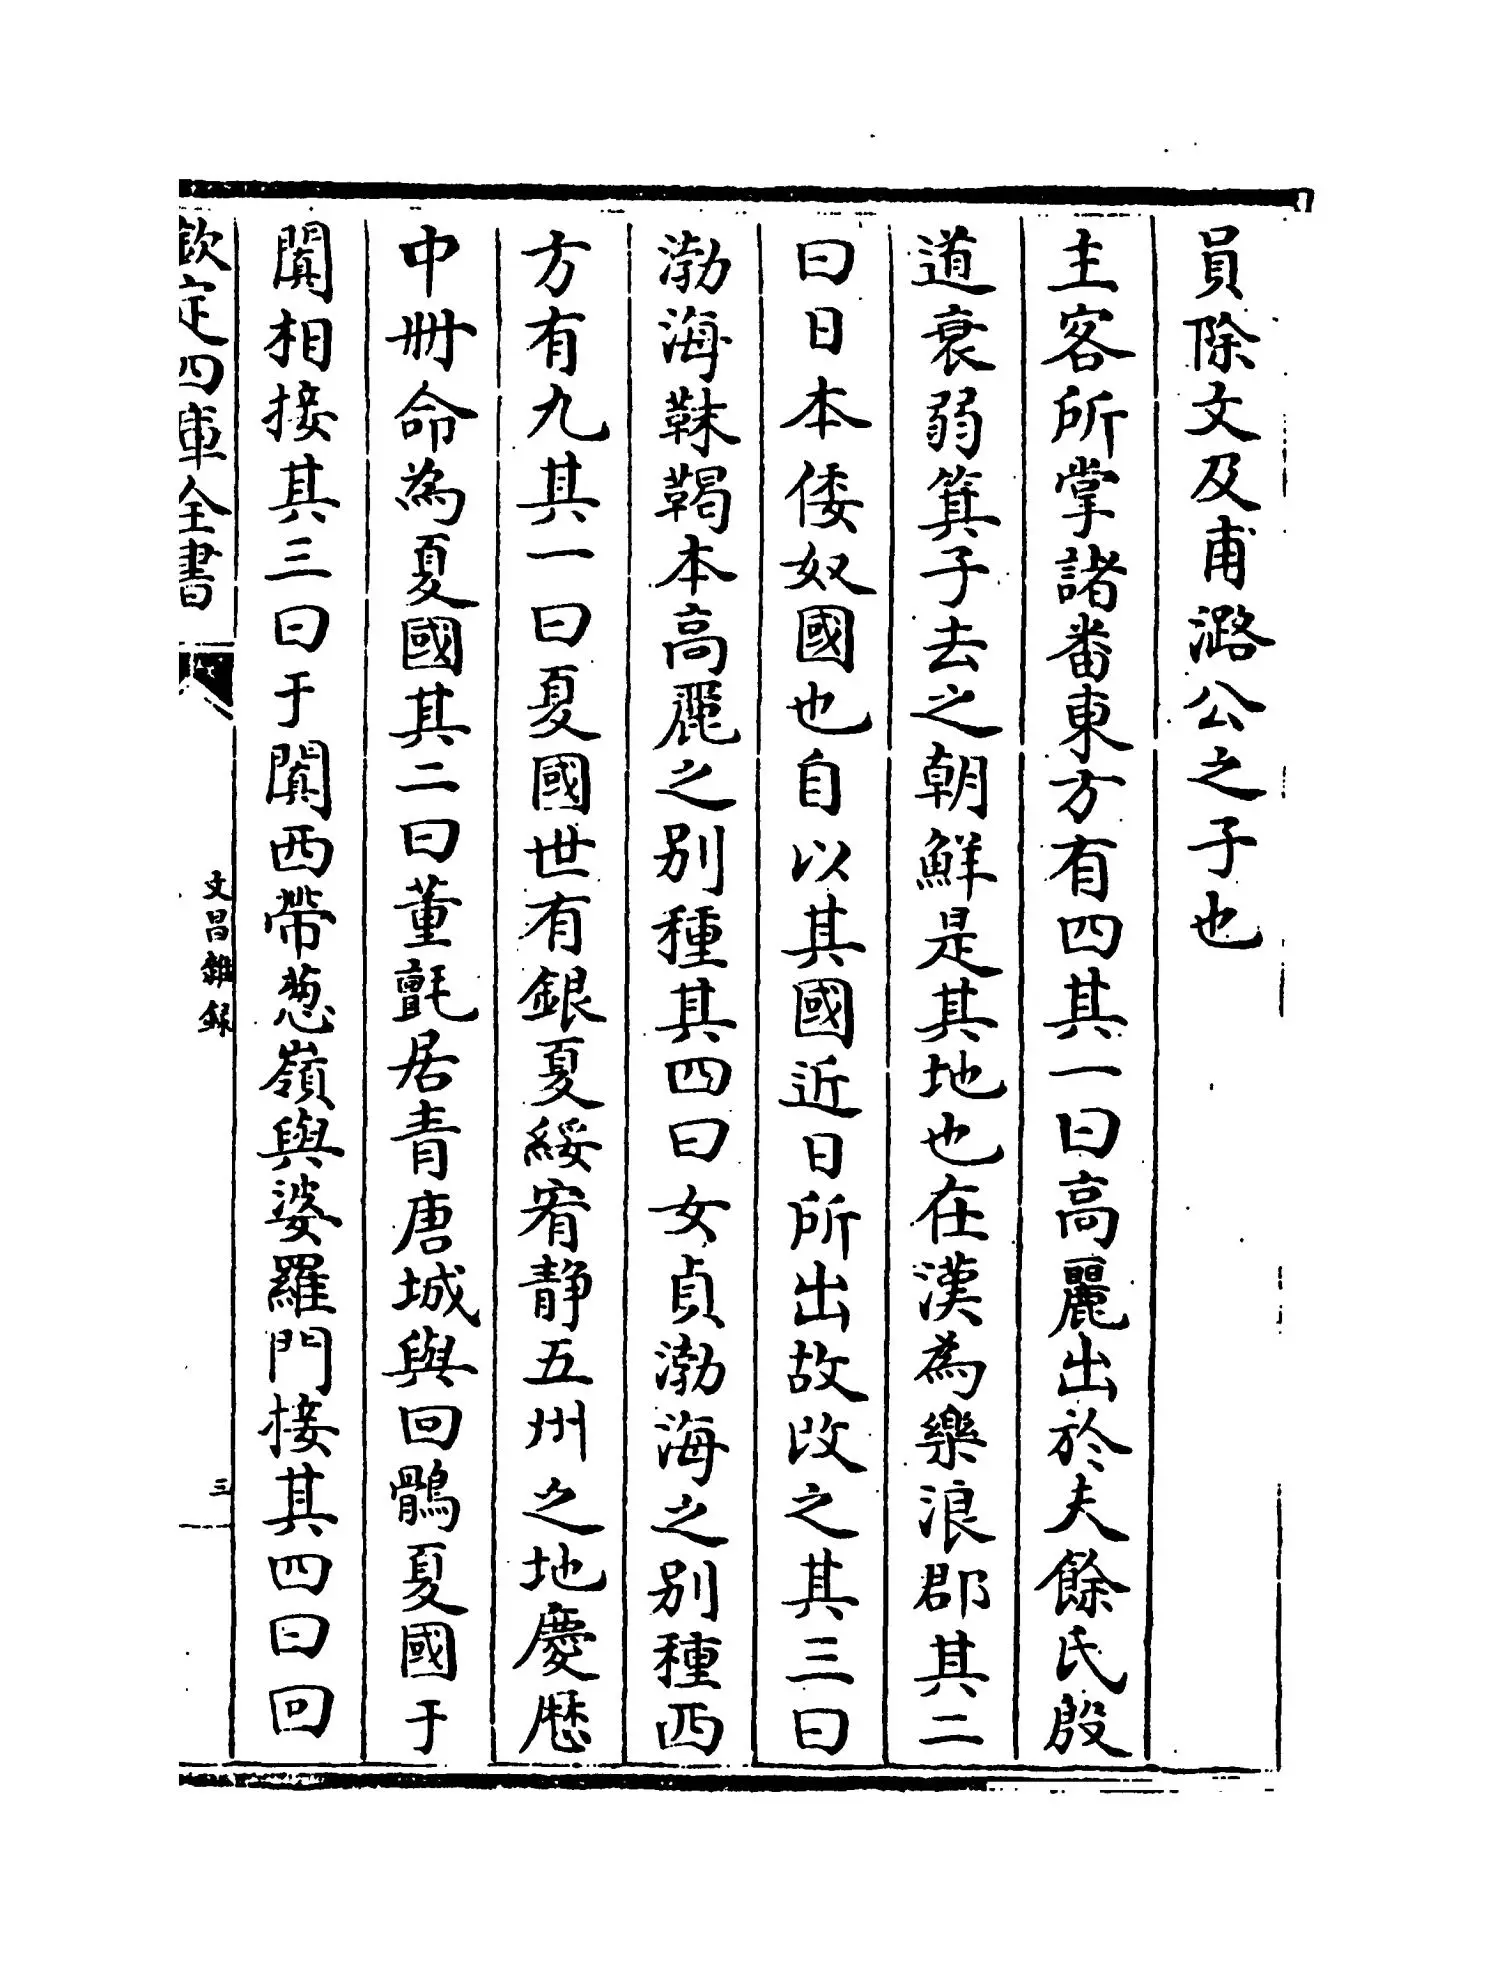 員除文及甫潞公之子也
主客所掌諸番東方有四其一曰高麗出於夫餘氏殷
道衰弱箕子去之朝鮮是其地也在漢為樂浪郡其二
曰日本倭奴國也自以其國近日所出故改之其三曰
渤海靺鞨本高麗之别種其四曰女貞渤海之别種西
方有九其一曰夏國世有銀夏綏宥静五州之地慶厯
中册命為夏國其二曰董氊居青唐城與回鶻夏國于
闐相接其三曰于闐西帶葱嶺與婆羅門接其四曰回
欽定四庫全書
文昌雜録
三